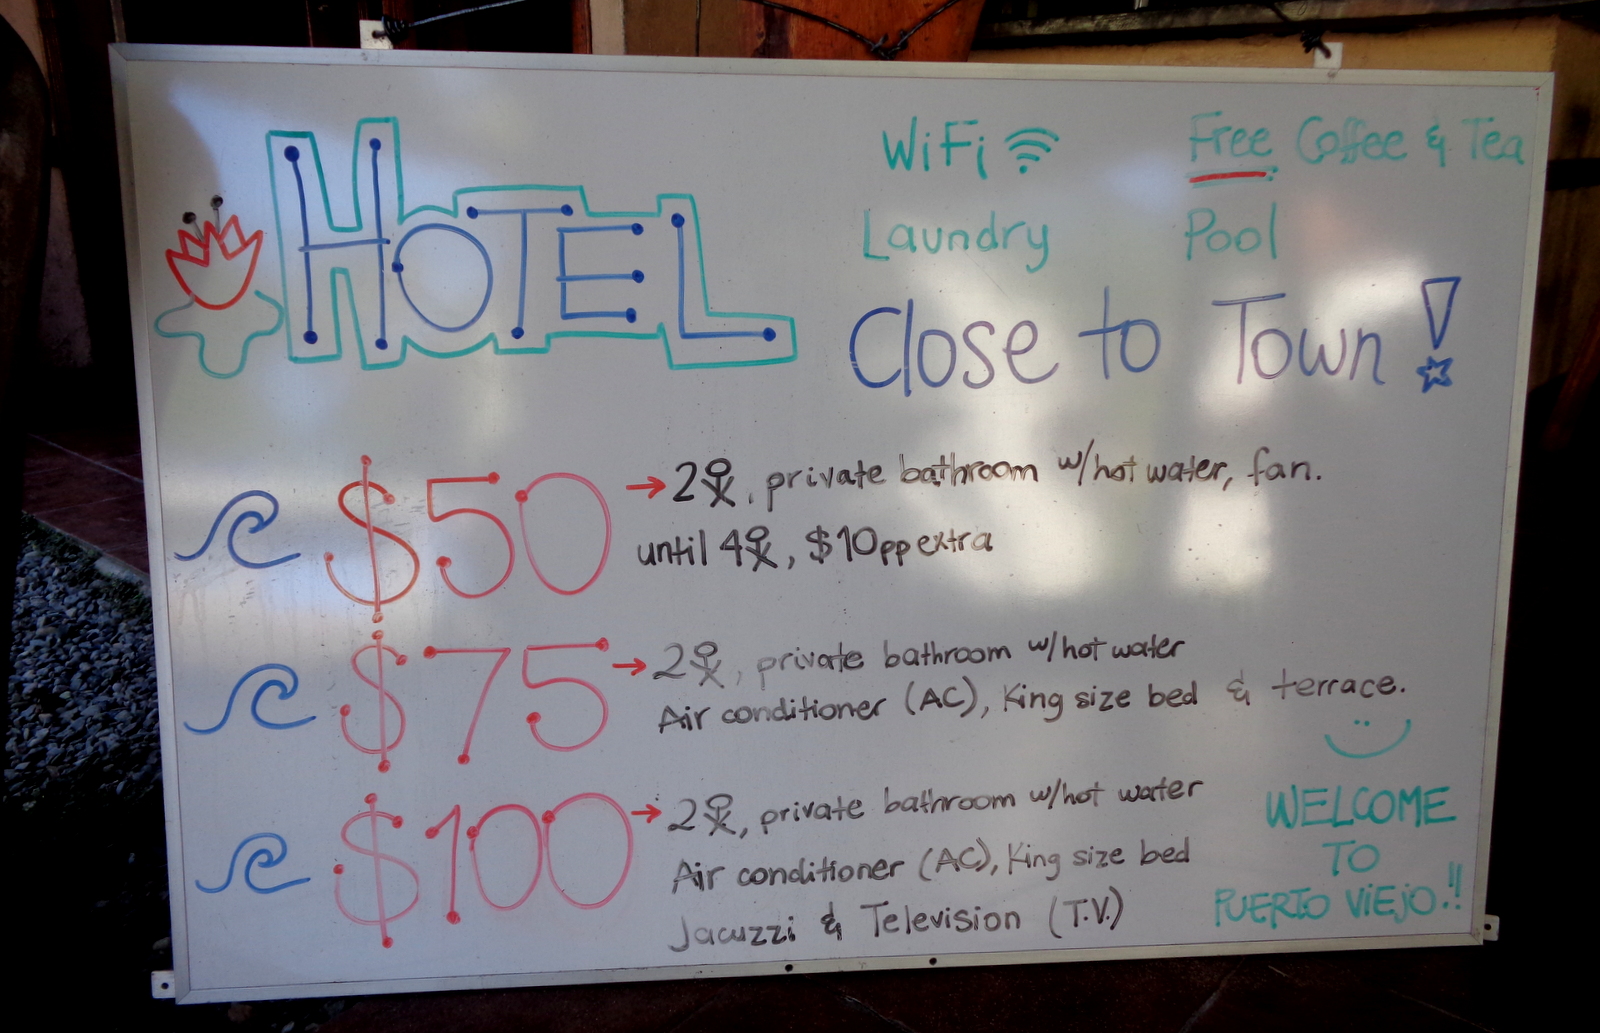 HOTEL
WiFi
Free Coffee & Tea
Laundry
Pool
Close to Town!
$50 → 2, private bathroom w/hot water, fan.
until 4, $10pp extra
$75 → 2, private bathroom w/hot water
Air conditioner (AC), King size bed & terrace.
$100 → 2, private bathroom w/hot water
Air conditioner (AC), King size bed
Jacuzzi & Television (T.V.)
WELCOME
TO
PUERTO ViEJO.!!